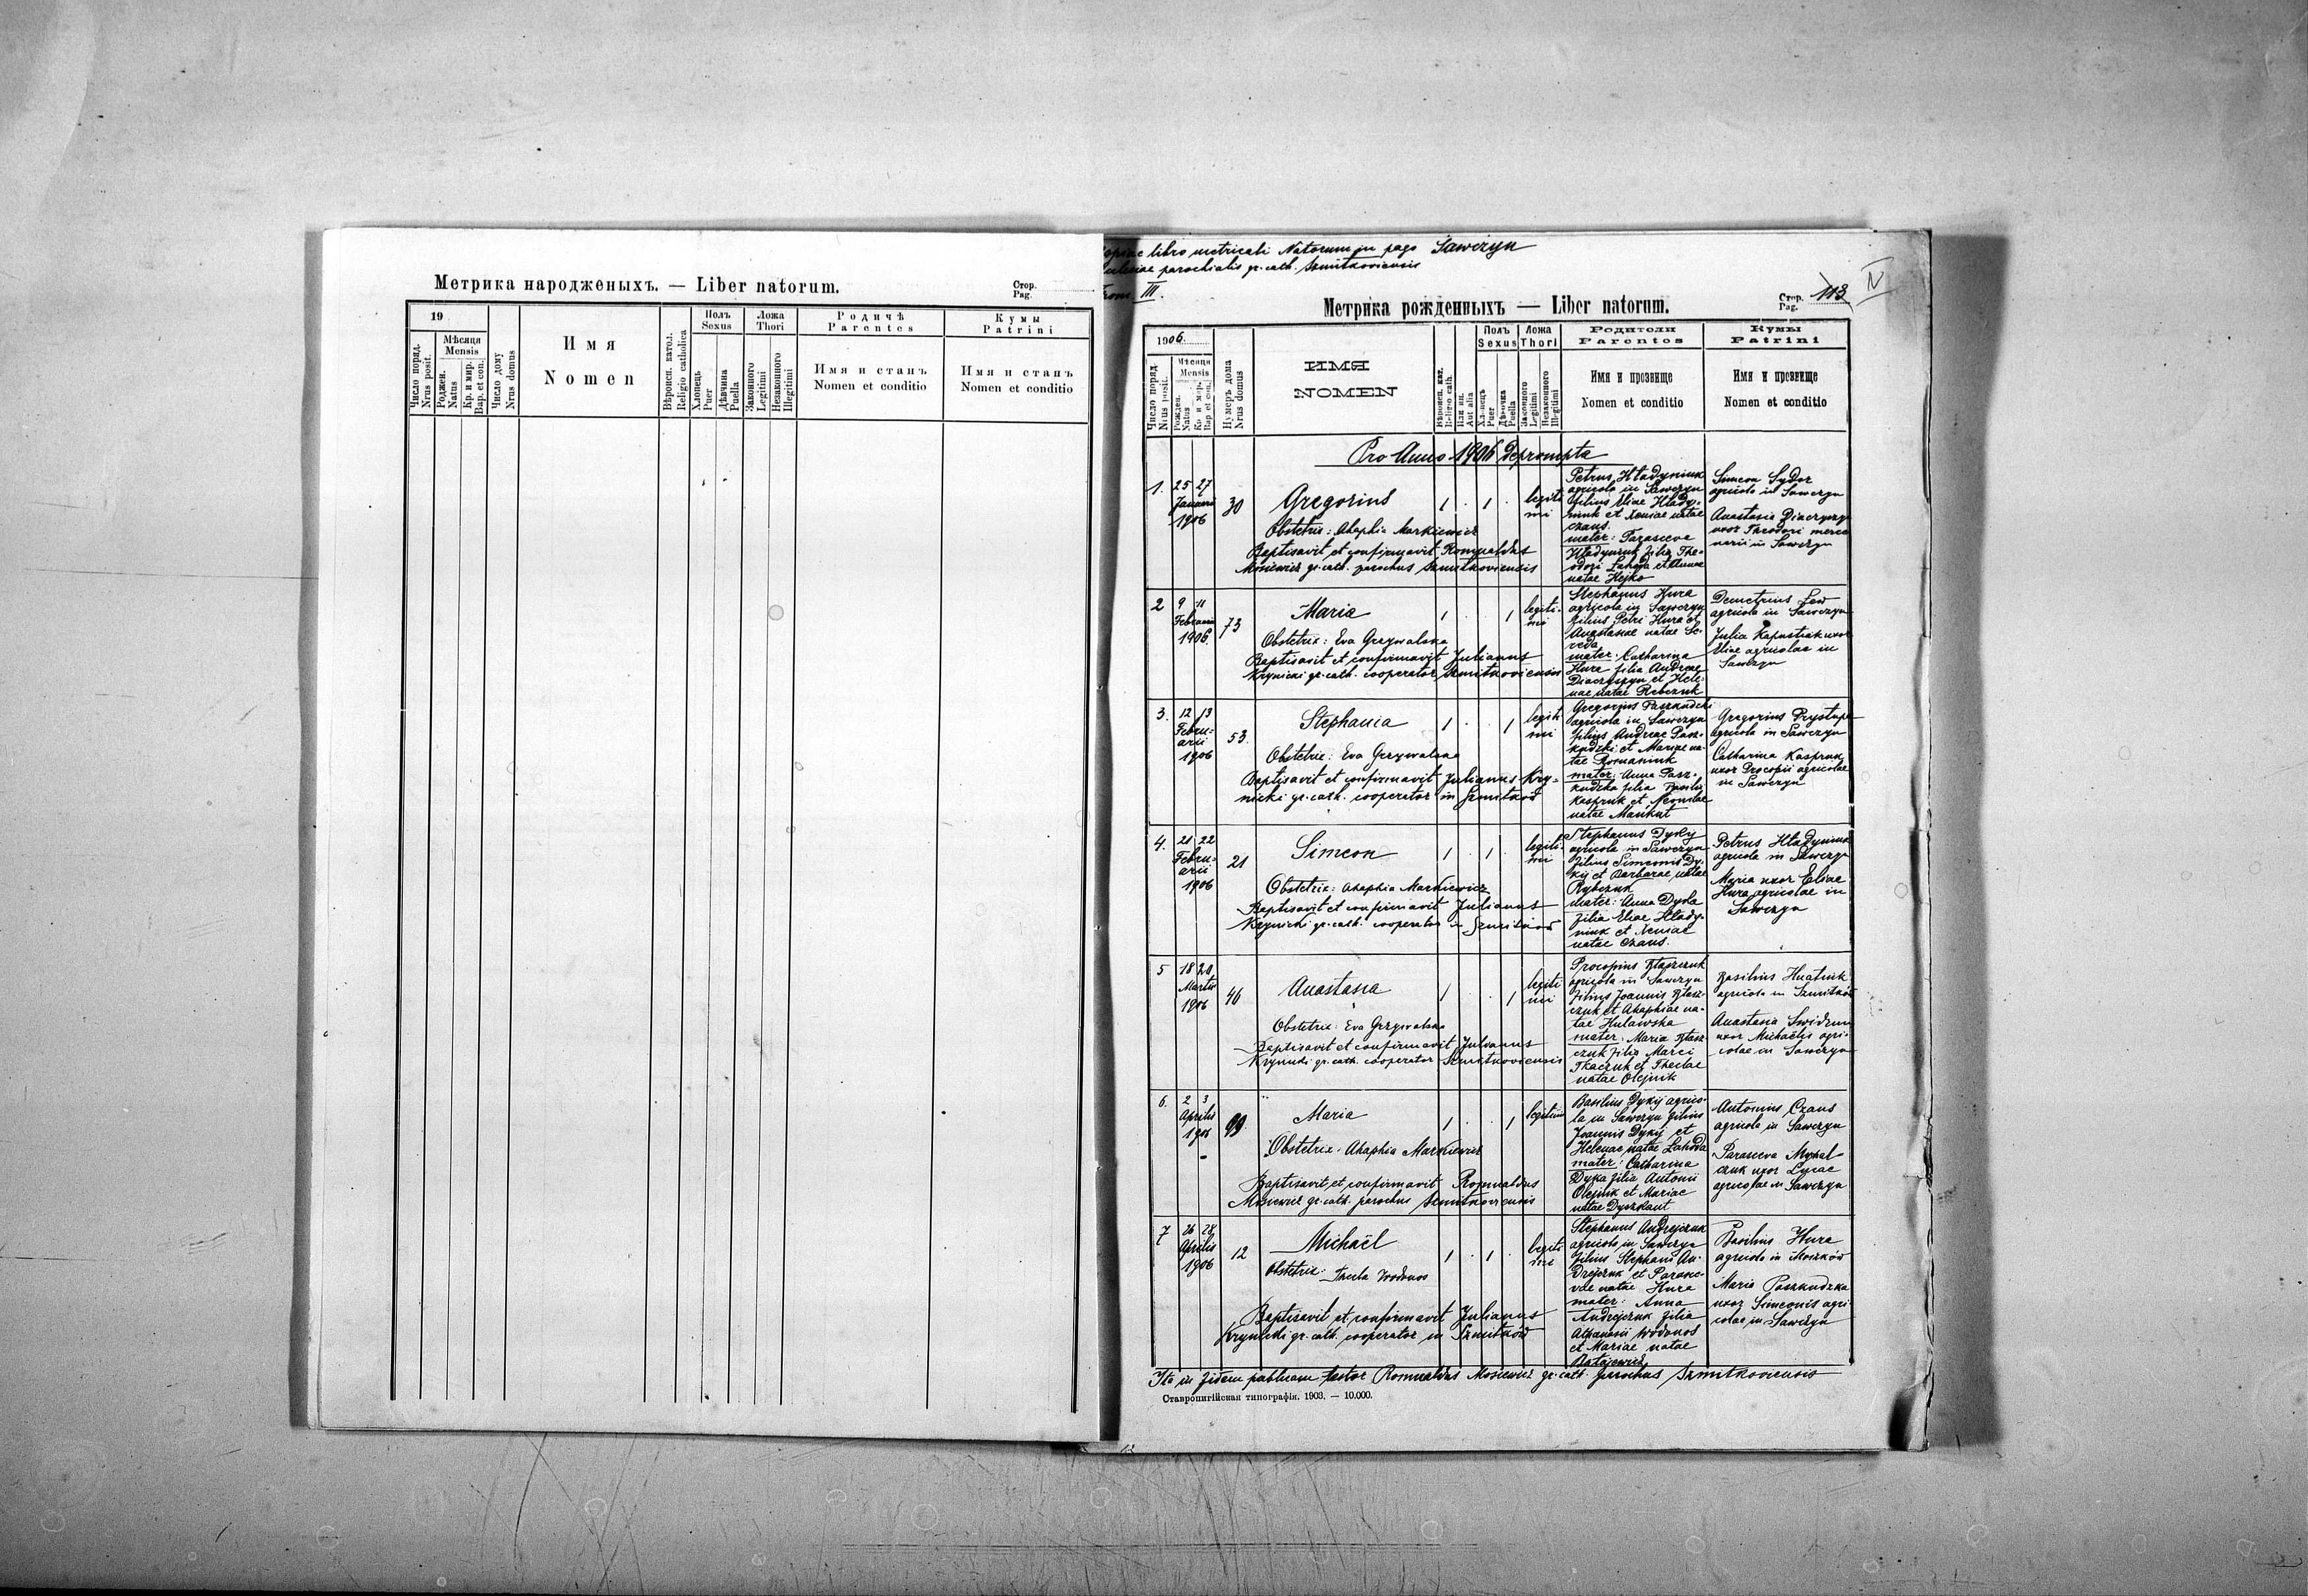 Метрика народженыхъ. — Liber natorum.
Стор.
Pag.
19
Число поряд.
Nrus posit.
Мѣсяця
Mensis
Роджен.
Natus
Кр. и мир.
Bap. et con.
Число дому
Nrus domus
Имя
Nomen
Вѣроисп. катол.
Religio catholica
Полъ
Sexus
Хлопець
Puer
Дѣвчина
Puella
Ложа
Thori
Законного
Legitimi
Незаконного
Illegitimi
Родичѣ
Parentes
Имя и станъ
Nomen et conditio
Кумы
Patrini
Имя и станъ
Nomen et conditio
libro metricali Natorum in pago Sawczyn
parochialis gr. cath. Szmitkoviensis
Tom. III.
IV
Метрика рожденныхъ — Liber natorum.
Стор.
Pag.
113
1906.
Число поряд.
Nrus posit.
Мѣсяця
Mensis
Рожден.
Natus
Кр. и мѵр.
Bap et con.
Нумеръ дома
Nrus domus
ИМЯ
NOMEN
Вѣроисп. кат.
Religio cath.
Или ин.
Aut alia
Полъ
Sexus
Хлопецъ
Puer
Дѣвочка
Puella
Ложа
Thori
Законного
Legitimi
Незаконного
Illegitimi
Родители
Parentes
Имя и прозвище
Nomen et conditio
Кумы
Patrini
Имя и прозвище
Nomen et conditio
Pro Anno 1906 deprompta
1. 25 27
Januarii
1906
30
Gregorius
1 . 1 .
legiti
mi
Obstetrix: Ahaphia Markiewicz
Baptisavit et confirmavit Romualdus
Mosiewicz gr. cath. parochus Szmitkoviensis
Petrus Hładyniuk
agricola in Sawczyn
filius Eliae Hłady-
niuk et Xeniae natae
Czaus.
mater: Parasceva
Hładyniuk filia The-
odori Łahoda et Annae
natae Hejko
Simeon Sydor
agricola in Sawczyn
Anastasia Diaczyszyn
uxor Theodori merce
narii in Sawczyn
2 9 11
Februarii
1906.
73
Maria
1 . . 1
legiti-
mi
Obstetrix: Eva Grzywalska
Baptisavit et confirmavit Julianus
Krynicki gr. cath. cooperator Szmitkoviensis
Stephanus Hura
agricola in Sawczyn
filius Petri Hura et
Anastasiae natae Se-
reda
mater: Catharina
Hura filia Andreae
Diaczyszyn et Hele-
nae natae Rebczuk
Demetrius Lew
agricola in Sawczyn
Julia Kapustiak uxor
Eliae agricolae in
Sawczyn
3. 12 13
Febru-
arii
1906
53.
Stephania
1 . . 1
legiti
mi
Obstetrix: Eva Grzywalska
Baptisavit et confirmavit Julianus Kry-
nicki gr. cath. cooperator in Szmitków
Gregorius Paszkudzki
agricola in Sawczyn
filius Andreae Pasz-
kudzki et Mariae na-
tae Romaniuk
mater: Anna Pasz-
kudzka filia Basilii
Kaspruk et Leonilae
natae Mankut
Gregorius Prystupa
agricola in Sawczyn
Catharina Kaspruk
uxor Procopii agricolae
in Sawczyn
4. 21 22
Febru-
arii
1906
21
Simeon
1 . 1 .
legiti-
mi
Obstetrix: Ahaphia Markiewicz
Baptisavit et confirmavit Julianus
Krynicki gr. cath. cooperator in Szmitków
Stephanus Dykij
agricola in Sawczyn
filius Simeonis Dy-
kij et Barbarae, natae
Rybczuk
mater: Anna Dyka
filia Eliae Hłady-
niuk et Xeniae
natae Czaus.
Petrus Hładyniuk
agricola in Sawczyn
Maria uxor Eliae
Hura agricolae in
Sawczyn
5 18 20
Martii
1906
46
Anastasia
1 . . 1
legiti
mi
Obstetrix: Eva Grzywalska
Baptisavit et confirmavit Julianus
Krynicki gr. cath. cooperator Szmitkoviensis
Procopius Błaszczuk
agricola in Sawczyn
filius Joannis Błasz-
czuk et Ahaphiae na-
tae Hulawska
mater: Maria Błasz-
czuk filia Marci
Tkaczuk et Theclae
natae Olejnik
Basilius Hnatiuk
agricola in Szmitków
Anastasia
uxor Michaëlis agri-
colae in Sawczyn
6. 2 3
Aprilis
1906
99
Maria
1 . . 1
legitimi
Obstetrix: Ahaphia Markiewicz
Baptisavit et confirmavit Romualdus
Mosiewicz gr. cath. parochus Szmitkoviensis
Basilius Dykij agrico-
la in Sawczyn filius
Joannis Dykij et
Helenae natae Łahoda
mater: Catharina
Dyka filia Antonii
Olejnik et Mariae
natae Dyszkant
Antonius Czaus
agricola in Sawczyn
Parasceva Mychal-
czuk uxor Lucae
agricolae in Sawczyn
7 26 28
Aprilis
1906
12
Michaël
1 . 1 .
legiti
mi
Obstetrix: Thecla Wodonos
Baptisavit et confirmavit Julianus
Krynicki gr. cath. cooperator in Szmitków
Stephanus Andrejczuk
agricola in Sawczyn
filius Stephani An-
drejczuk et Parasce-
vae natae Hura
mater: Anna
Andrejczuk filia
Athanasii Wodonos
et Mariae natae
Batajewicz
Basilius Hura
agricola in Moszków
Maria Paszkudzka
uxor Simeonis agri-
colae in Sawczyn
Ita in fidem publicam testor Romualdus Mosiewicz gr. cath. parochus Szmitkoviensis
Ставропигійская типографія. 1903. — 10.000.